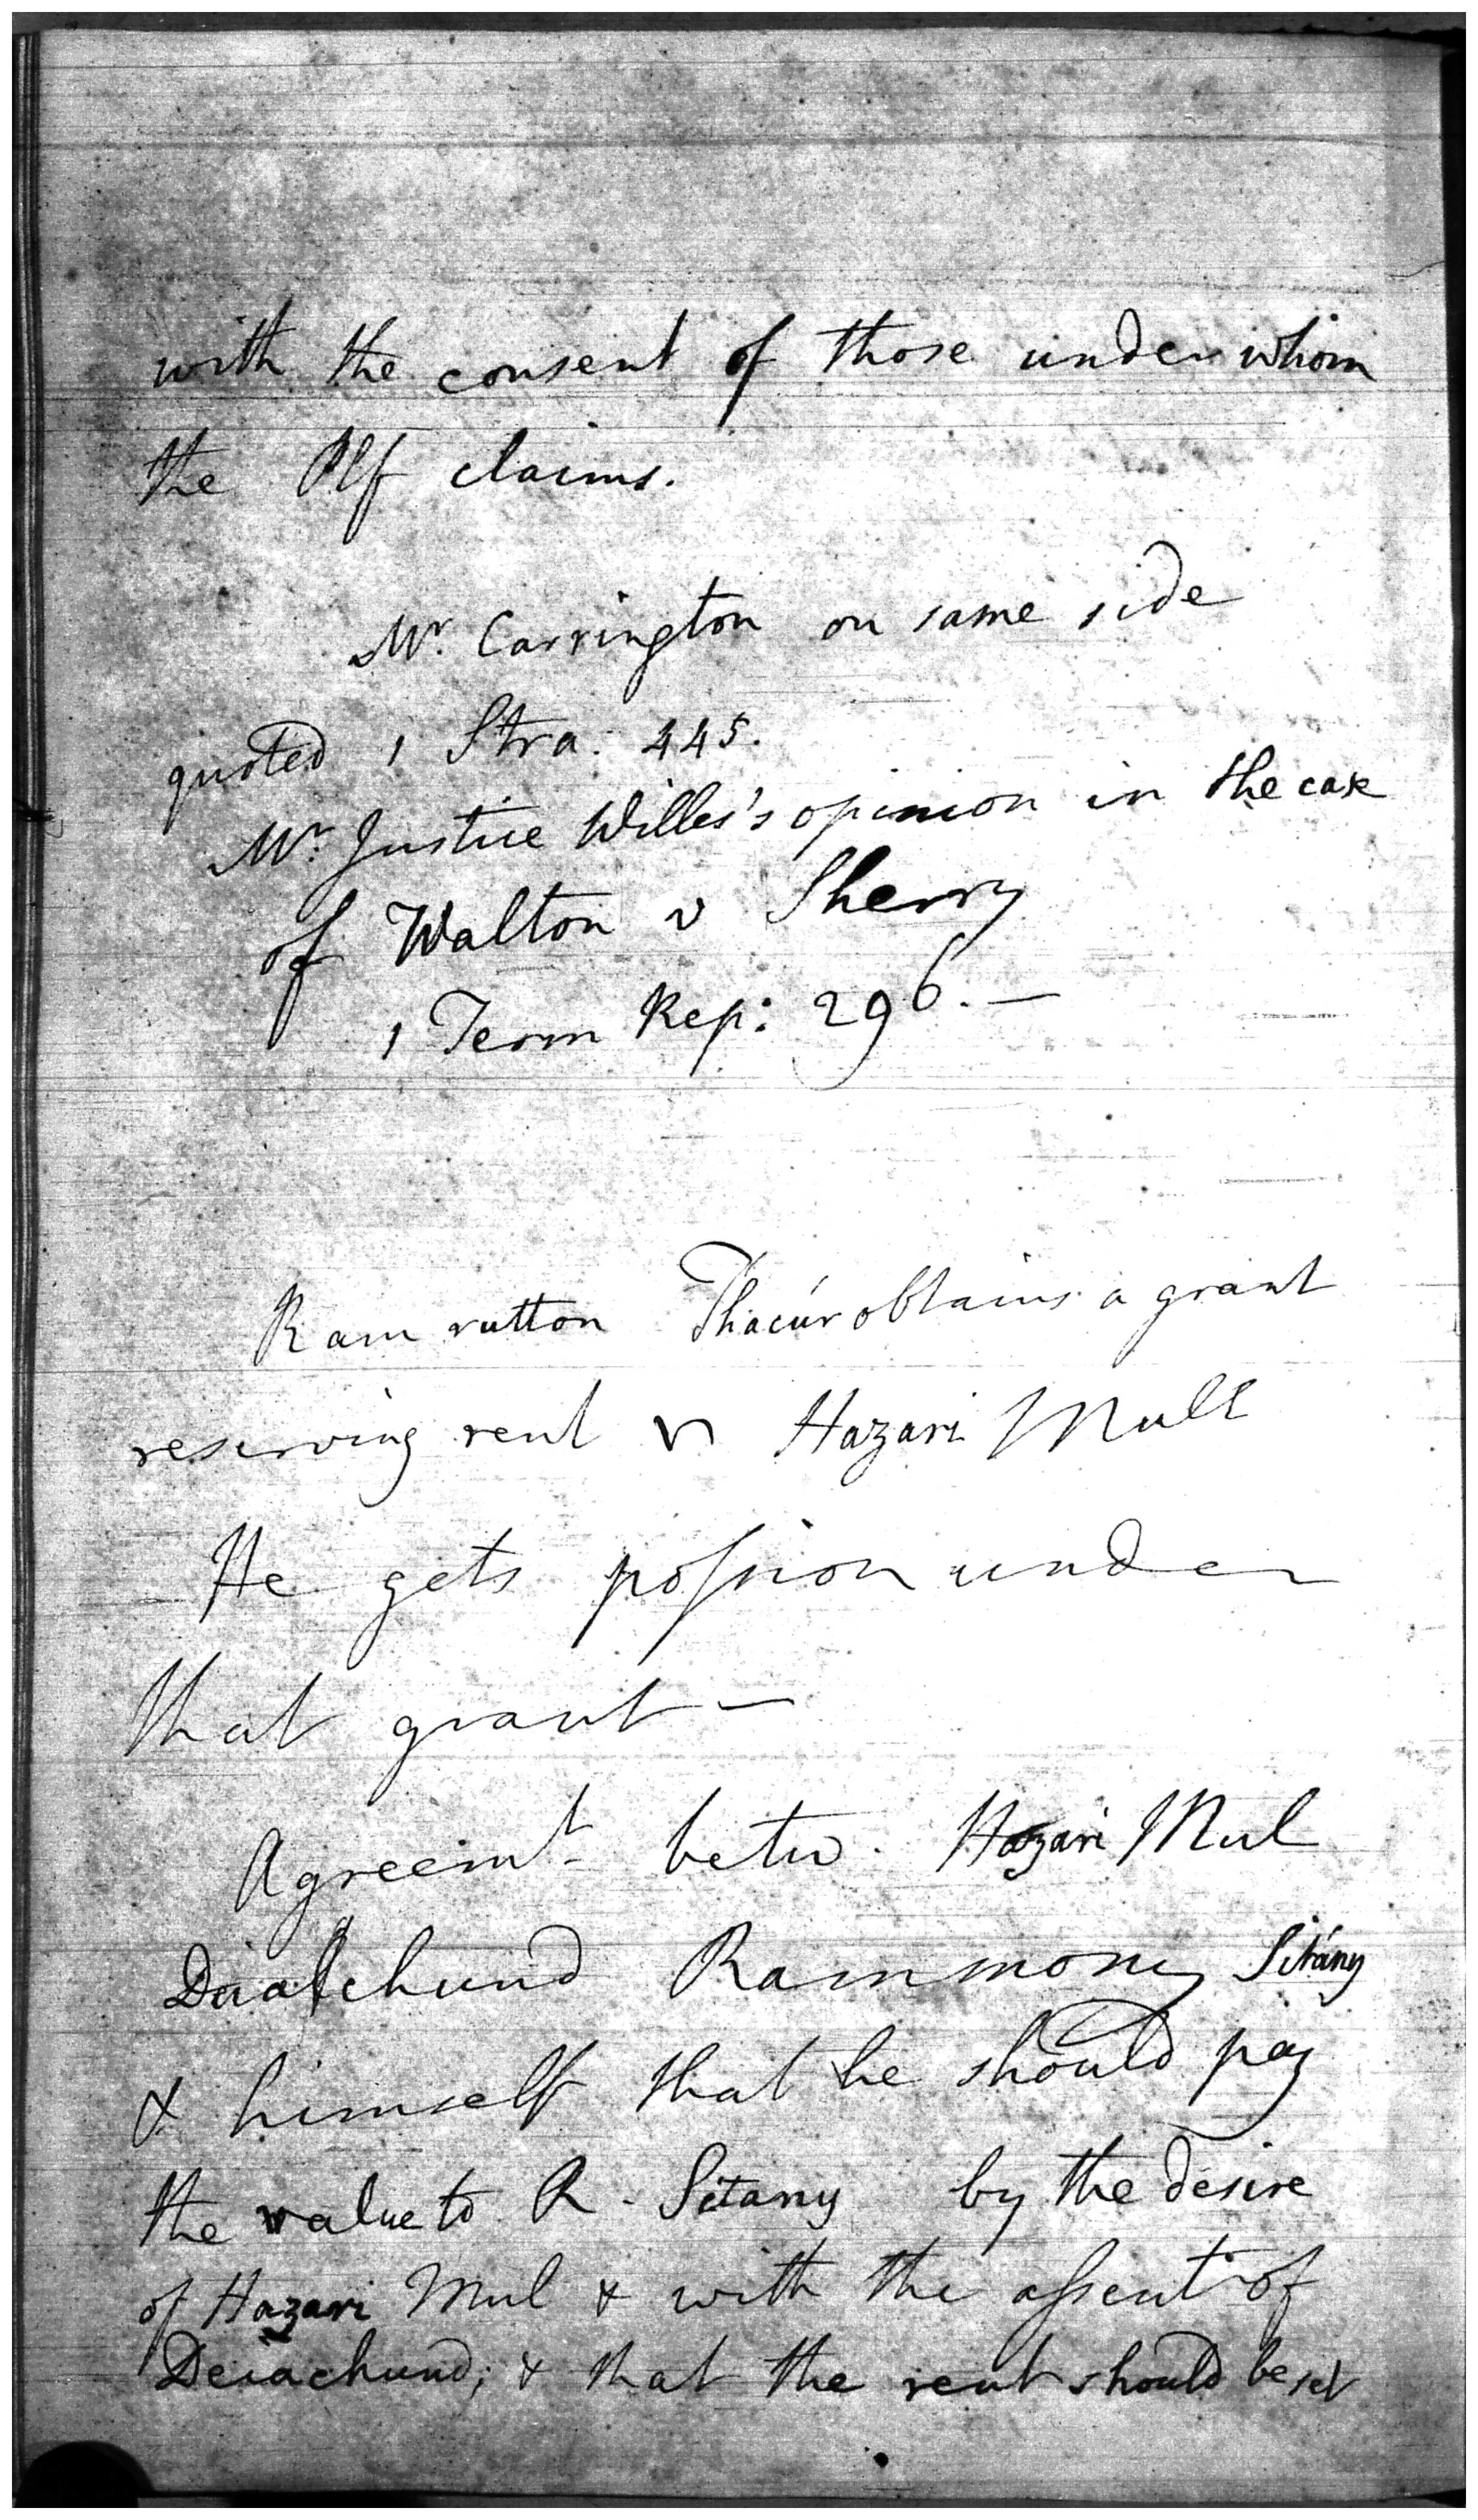 with the consent of those under whom
the Plf claims.
Mr. Carrington on same side
quoted 1 Stra: 445.
Mr. Justice Willes's opinion in the case
of Walton v Sherry
1 Term Rep: 296. —
Ram rutton Thacúr obtains a grant
reserving rent Hazari Mull
He gets possion under
that grant —
Agreemt betw. Hazari Mul
Rammony Sitány
& himself that he should pay
the value to R. Sitany by the desire
of Hazari Mul & with the assent of
Deiachund; & that the rent should be set